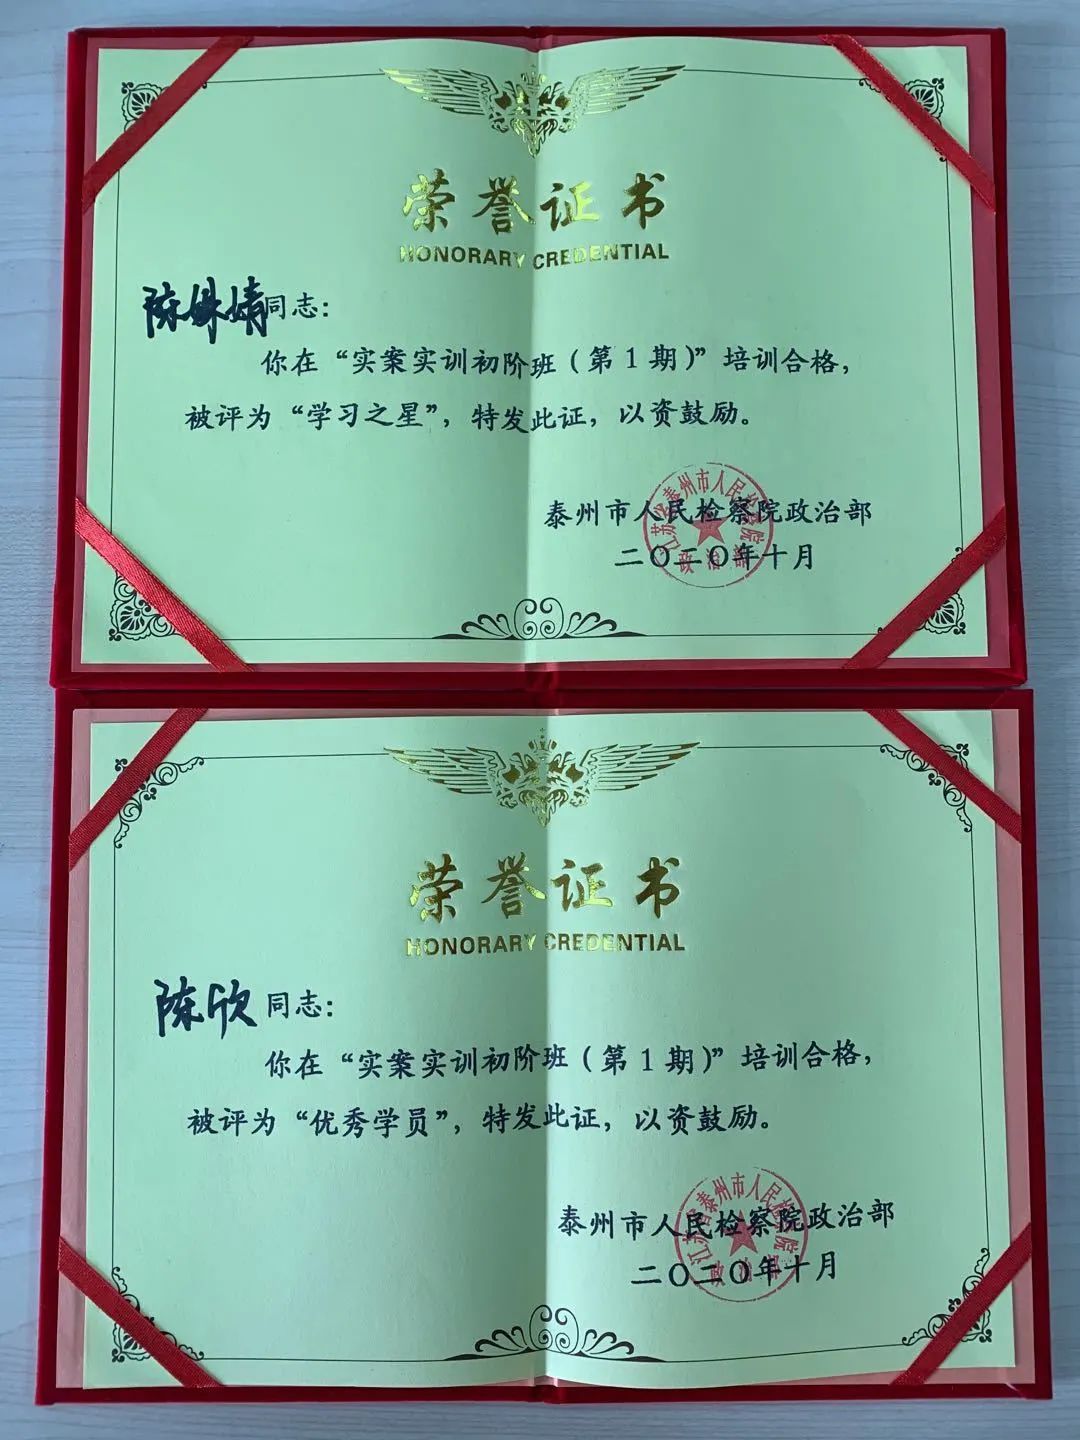 荣誉证书
HONORARY CREDENTIAL
陈姝婧同志：
你在“实案实训初阶班（第1期）”培训合格，
被评为“学习之星”，特发此证，以资鼓励。
泰州市人民检察院政治部
二〇二〇年十月
江苏省泰州市人民检察院
政治部
荣誉证书
HONORARY CREDENTIAL
陈欣同志：
你在“实案实训初阶班（第1期）”培训合格，
被评为“优秀学员”，特发此证，以资鼓励。
泰州市人民检察院政治部
二〇二〇年十月
江苏省泰州市人民检察院
政治部